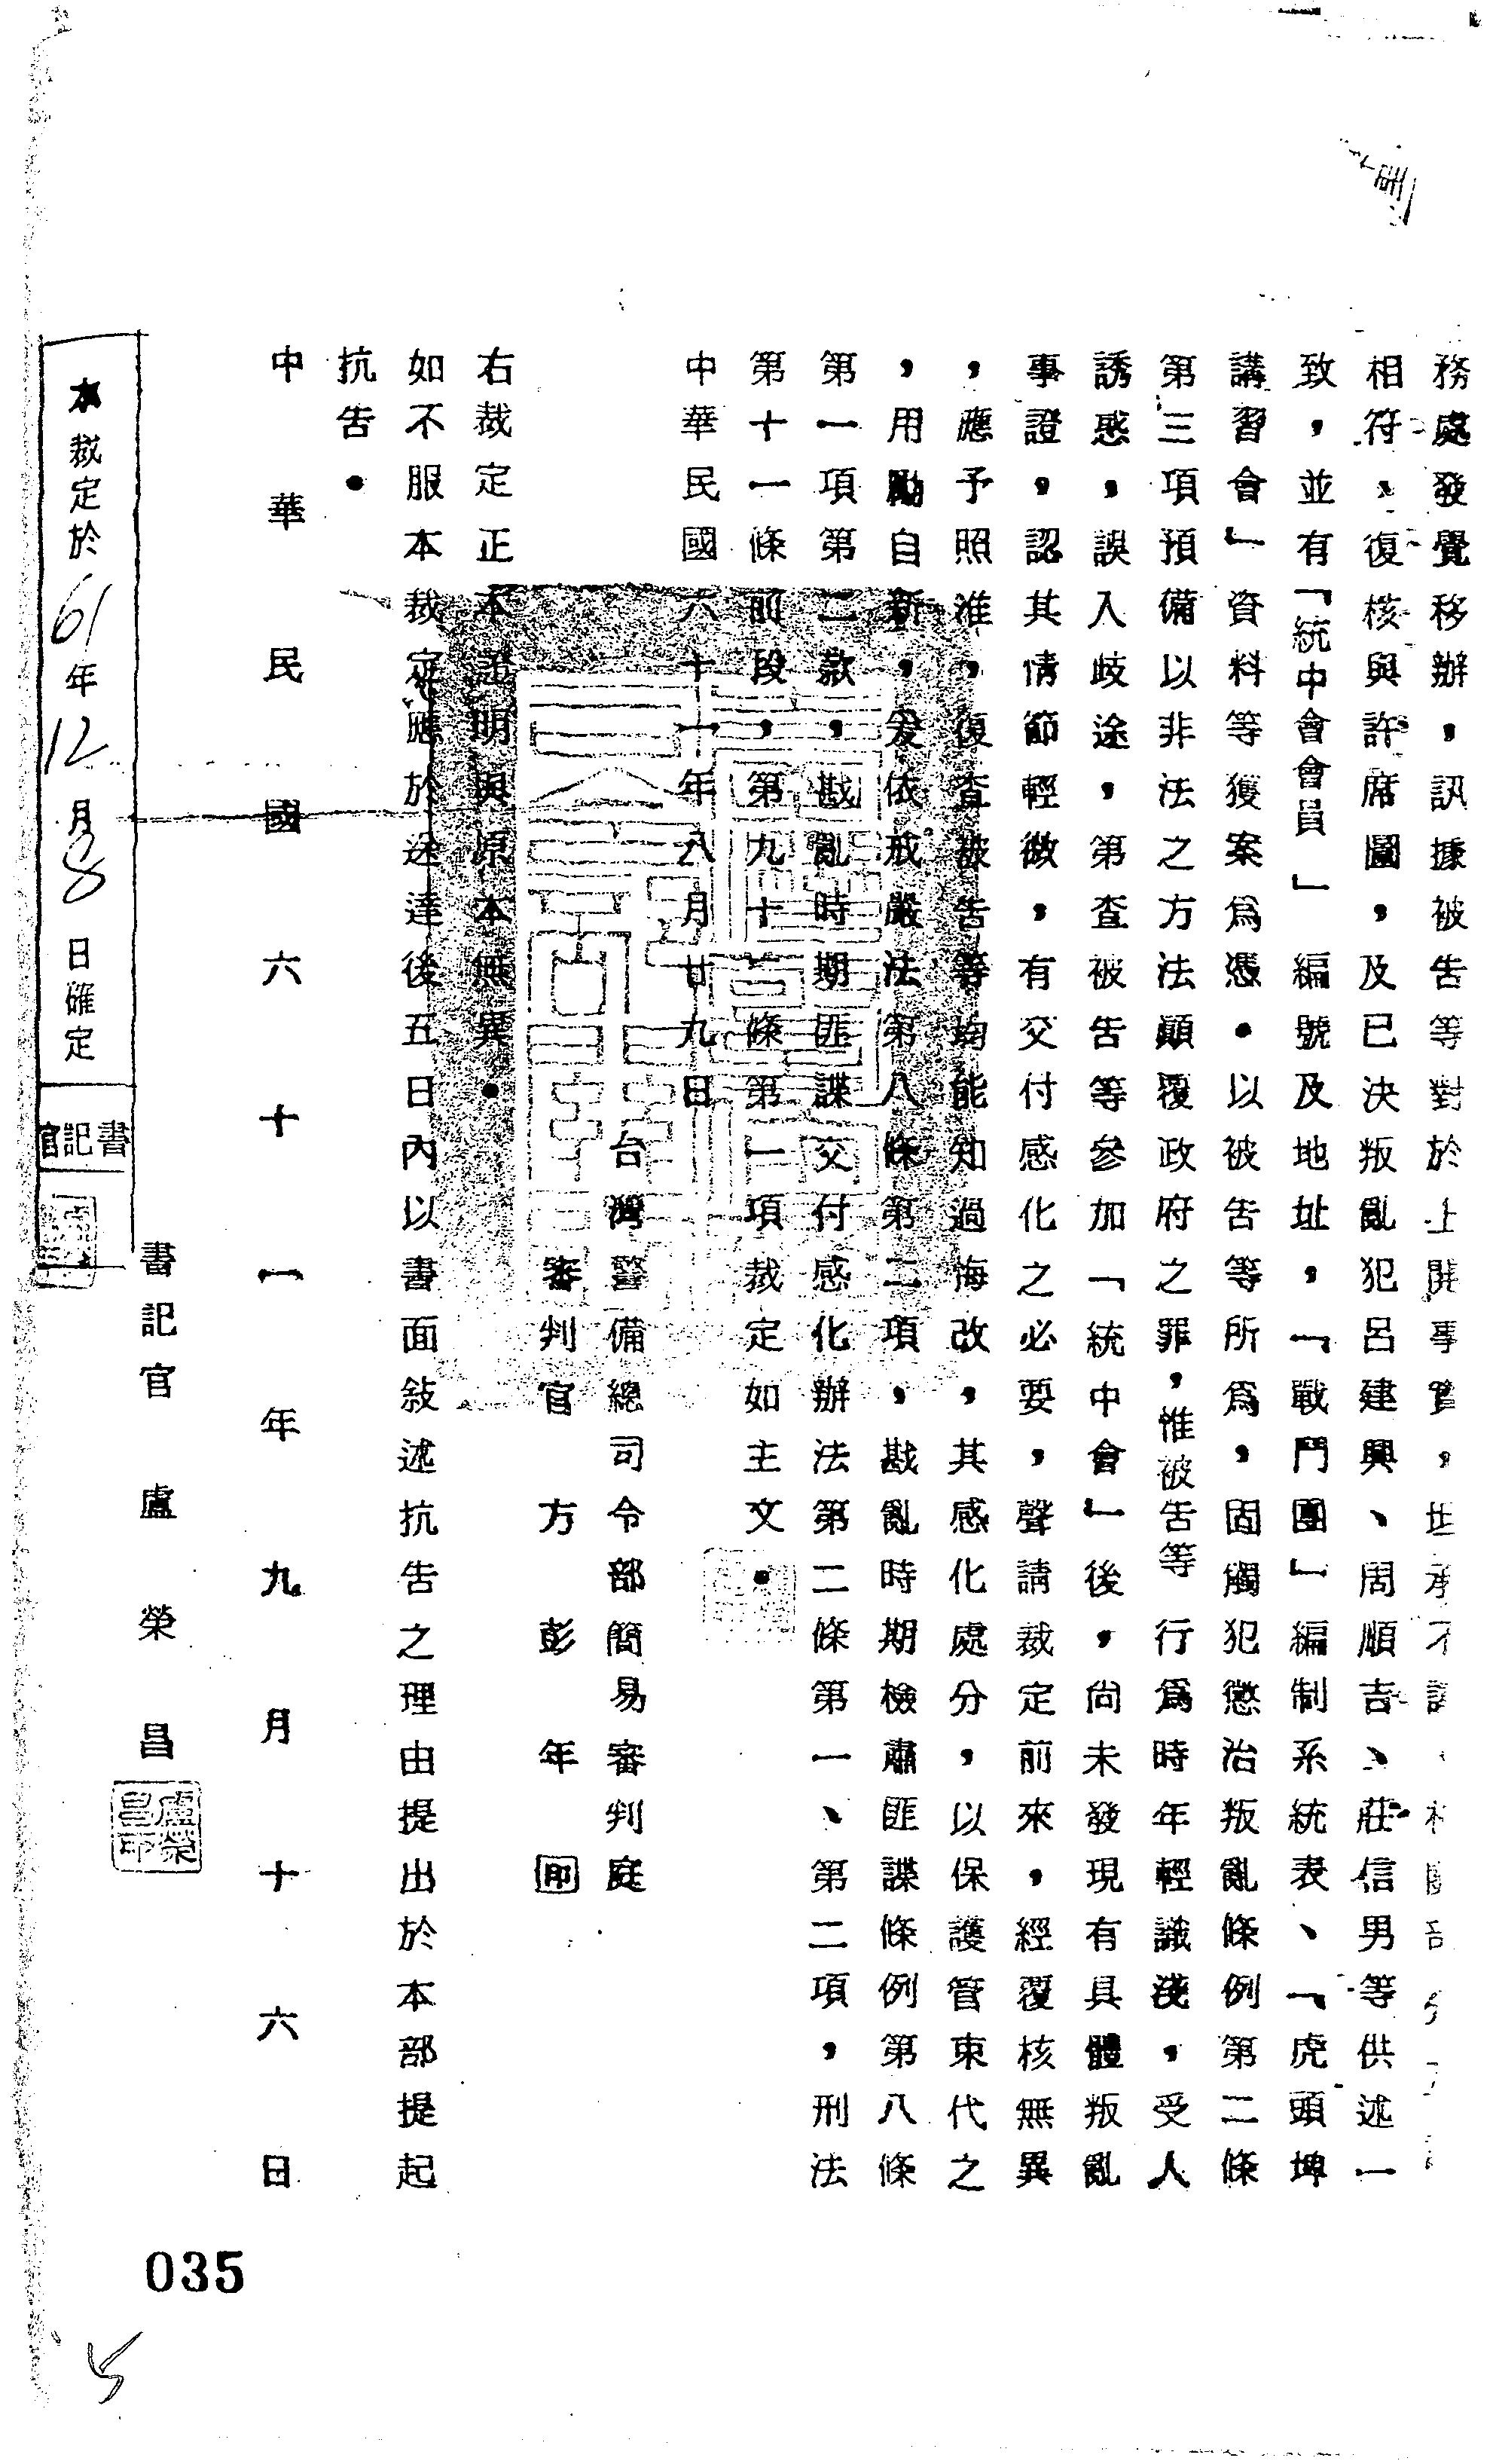 務處發覺移辦，訊據被告等對於上開事實，坦承不諱、
相符、復核與許席圖，及已決叛亂犯呂建興、周順吉、莊信男等供述一
致，並有「統中會會員」編號及地址，「戰鬥團」編制系統表、「虎頭埤
講習會」資料等獲案為憑。以被告等所為，固觸犯懲治叛亂條例第二條
第三項預備以非法之方法顛覆政府之罪，惟被告等行為時年輕識淺，受人
誘惑，誤入歧途，第查被告等參加「統中會」後，尚未發現有具體叛亂
事證，認其情節輕微，有交付感化之必要，聲請裁定前來，經覆核無異
，應予照准，復查被告等均能知過悔改，其感化處分，以保護管束代之
，用勵自新，爰依戒嚴法第八條第二項，戡亂時期檢肅匪諜條例第八條
第一項第二款，戡亂時期匪諜交付感化辦法第二條第一、第二項，刑法
第十一條前段，第九十二條第一項裁定如主文。
中華民國六十一年八月廿九日
台灣警備總司令部簡易審判庭
審判官 方彭年 印
右裁定正本證明與原本無異。
如不服本裁定應於送達後五日內以書面敍述抗告之理由提出於本部提起
抗告。
中華民國六十一年九月十六日
書記官 盧榮昌
盧榮昌印
本裁定於61年12月8日確定
書記官
035